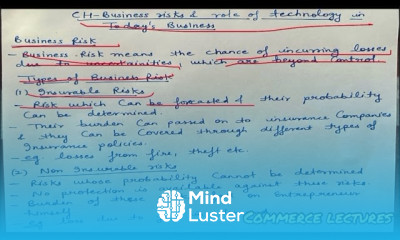 CH-Business risks & role of technology in
Today's Business
Business Risk
- Business Risk means the chance of incurring losses
due to uncertainities, which are beyond control.
Types of Business Risk
(1) Insurable Risks
- Risk which can be forcasted & their probability
Can be determined.
- Their burden Can passed on to insurance Companies
& they Can be Covered through different types of
Insurance policies.
- eg. losses from fire, theft etc.
(2) Non Insurable risks
- Risks whose probability Cannot be determined
- No protection is available against these risks.
- Burden of these on Entrepreneur
himself
- eg loss due to
Mind
Luster
COMMERCE LECTURES